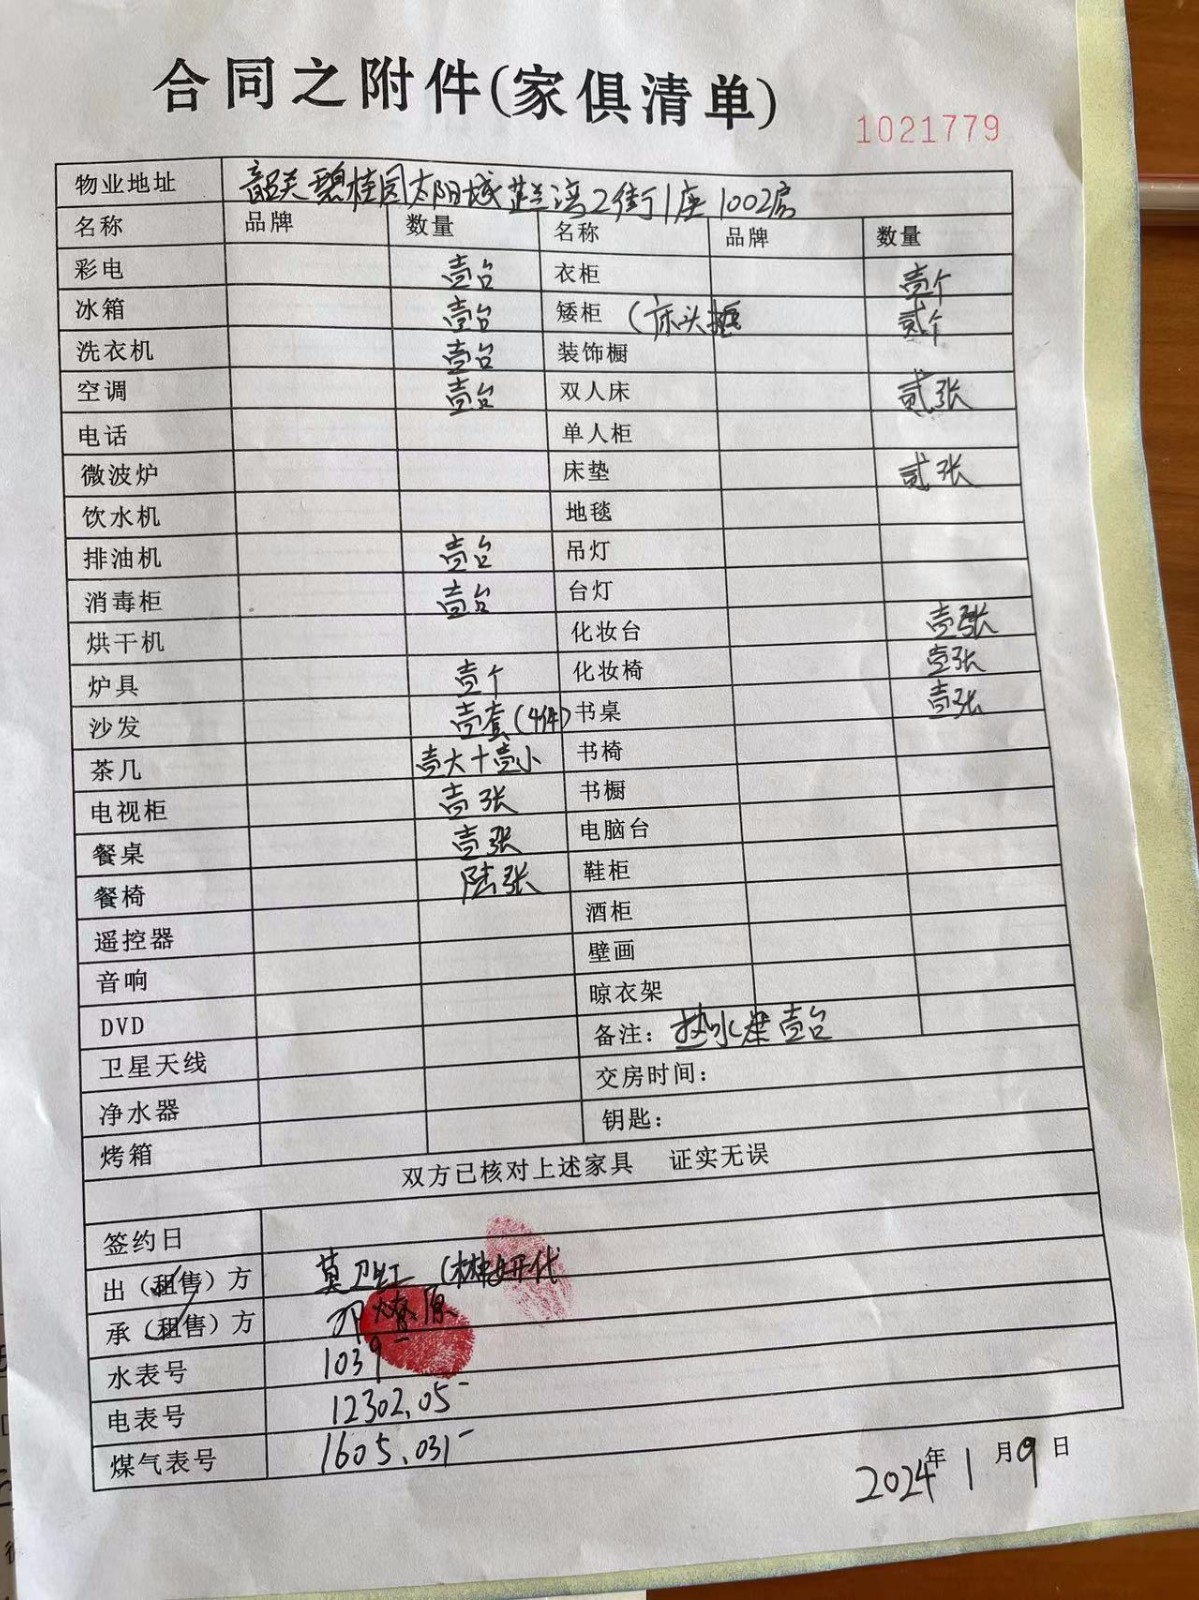 合同之附件(家俱清单)
1021779
物业地址 韶关碧桂园太阳城芷兰湾2街1座1002房
名称 品牌 数量 名称 品牌 数量
彩电 壹台 衣柜 壹个
冰箱 壹台 矮柜 (床头柜 贰个
洗衣机 壹台 装饰橱
空调 壹台 双人床 贰张
电话 单人柜
微波炉 床垫 贰张
饮水机 地毯
排油机 壹台 吊灯
消毒柜 壹台 台灯
烘干机 化妆台 壹张
炉具 壹个 化妆椅 壹张
沙发 壹套(4件) 书桌 壹张
茶几 壹大十壹小 书椅
电视柜 壹张 书橱
餐桌 壹张 电脑台
餐椅 陆张 鞋柜
遥控器 酒柜
音响 壁画
DVD 晾衣架
卫星天线 备注: 热水器壹台
净水器 交房时间:
烤箱 钥匙:
双方已核对上述家具 证实无误
签约日
出(租售)方 莫卫红 代
承(租售)方 邓燎原
水表号 1039
电表号 12302.05
煤气表号 1605.031
2024年1月9日